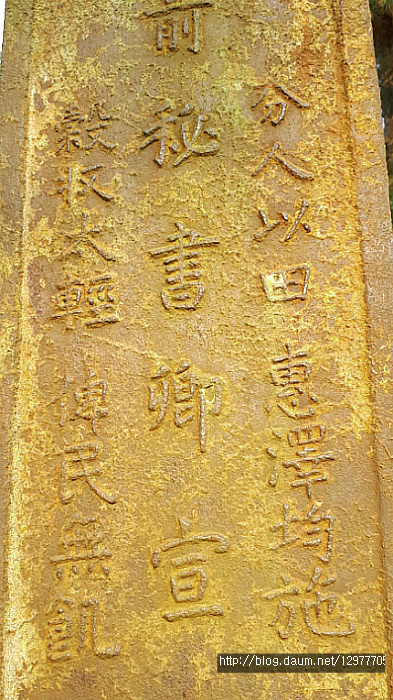 分人以田 惠澤均施
前秘書卿宣
穀収太輕 俾民無飢
http://blog.daum.net/12977705